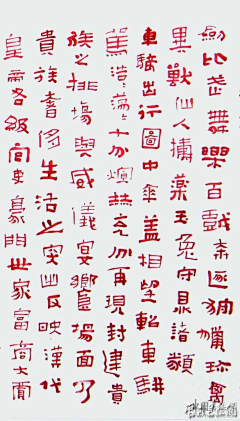 劍比武舞樂百戲逐狗獵珍禽
異獸仙人搗藥玉兔守日諸類
車騎出行圖中傘蓋相望軺車駢
浩蕩十分煊赫充分再現封建貴
族之排場與威儀宴饗場面乃
貴族奢侈生活之突出反映漢代
皇帝各級官吏豪門世家富商大賈